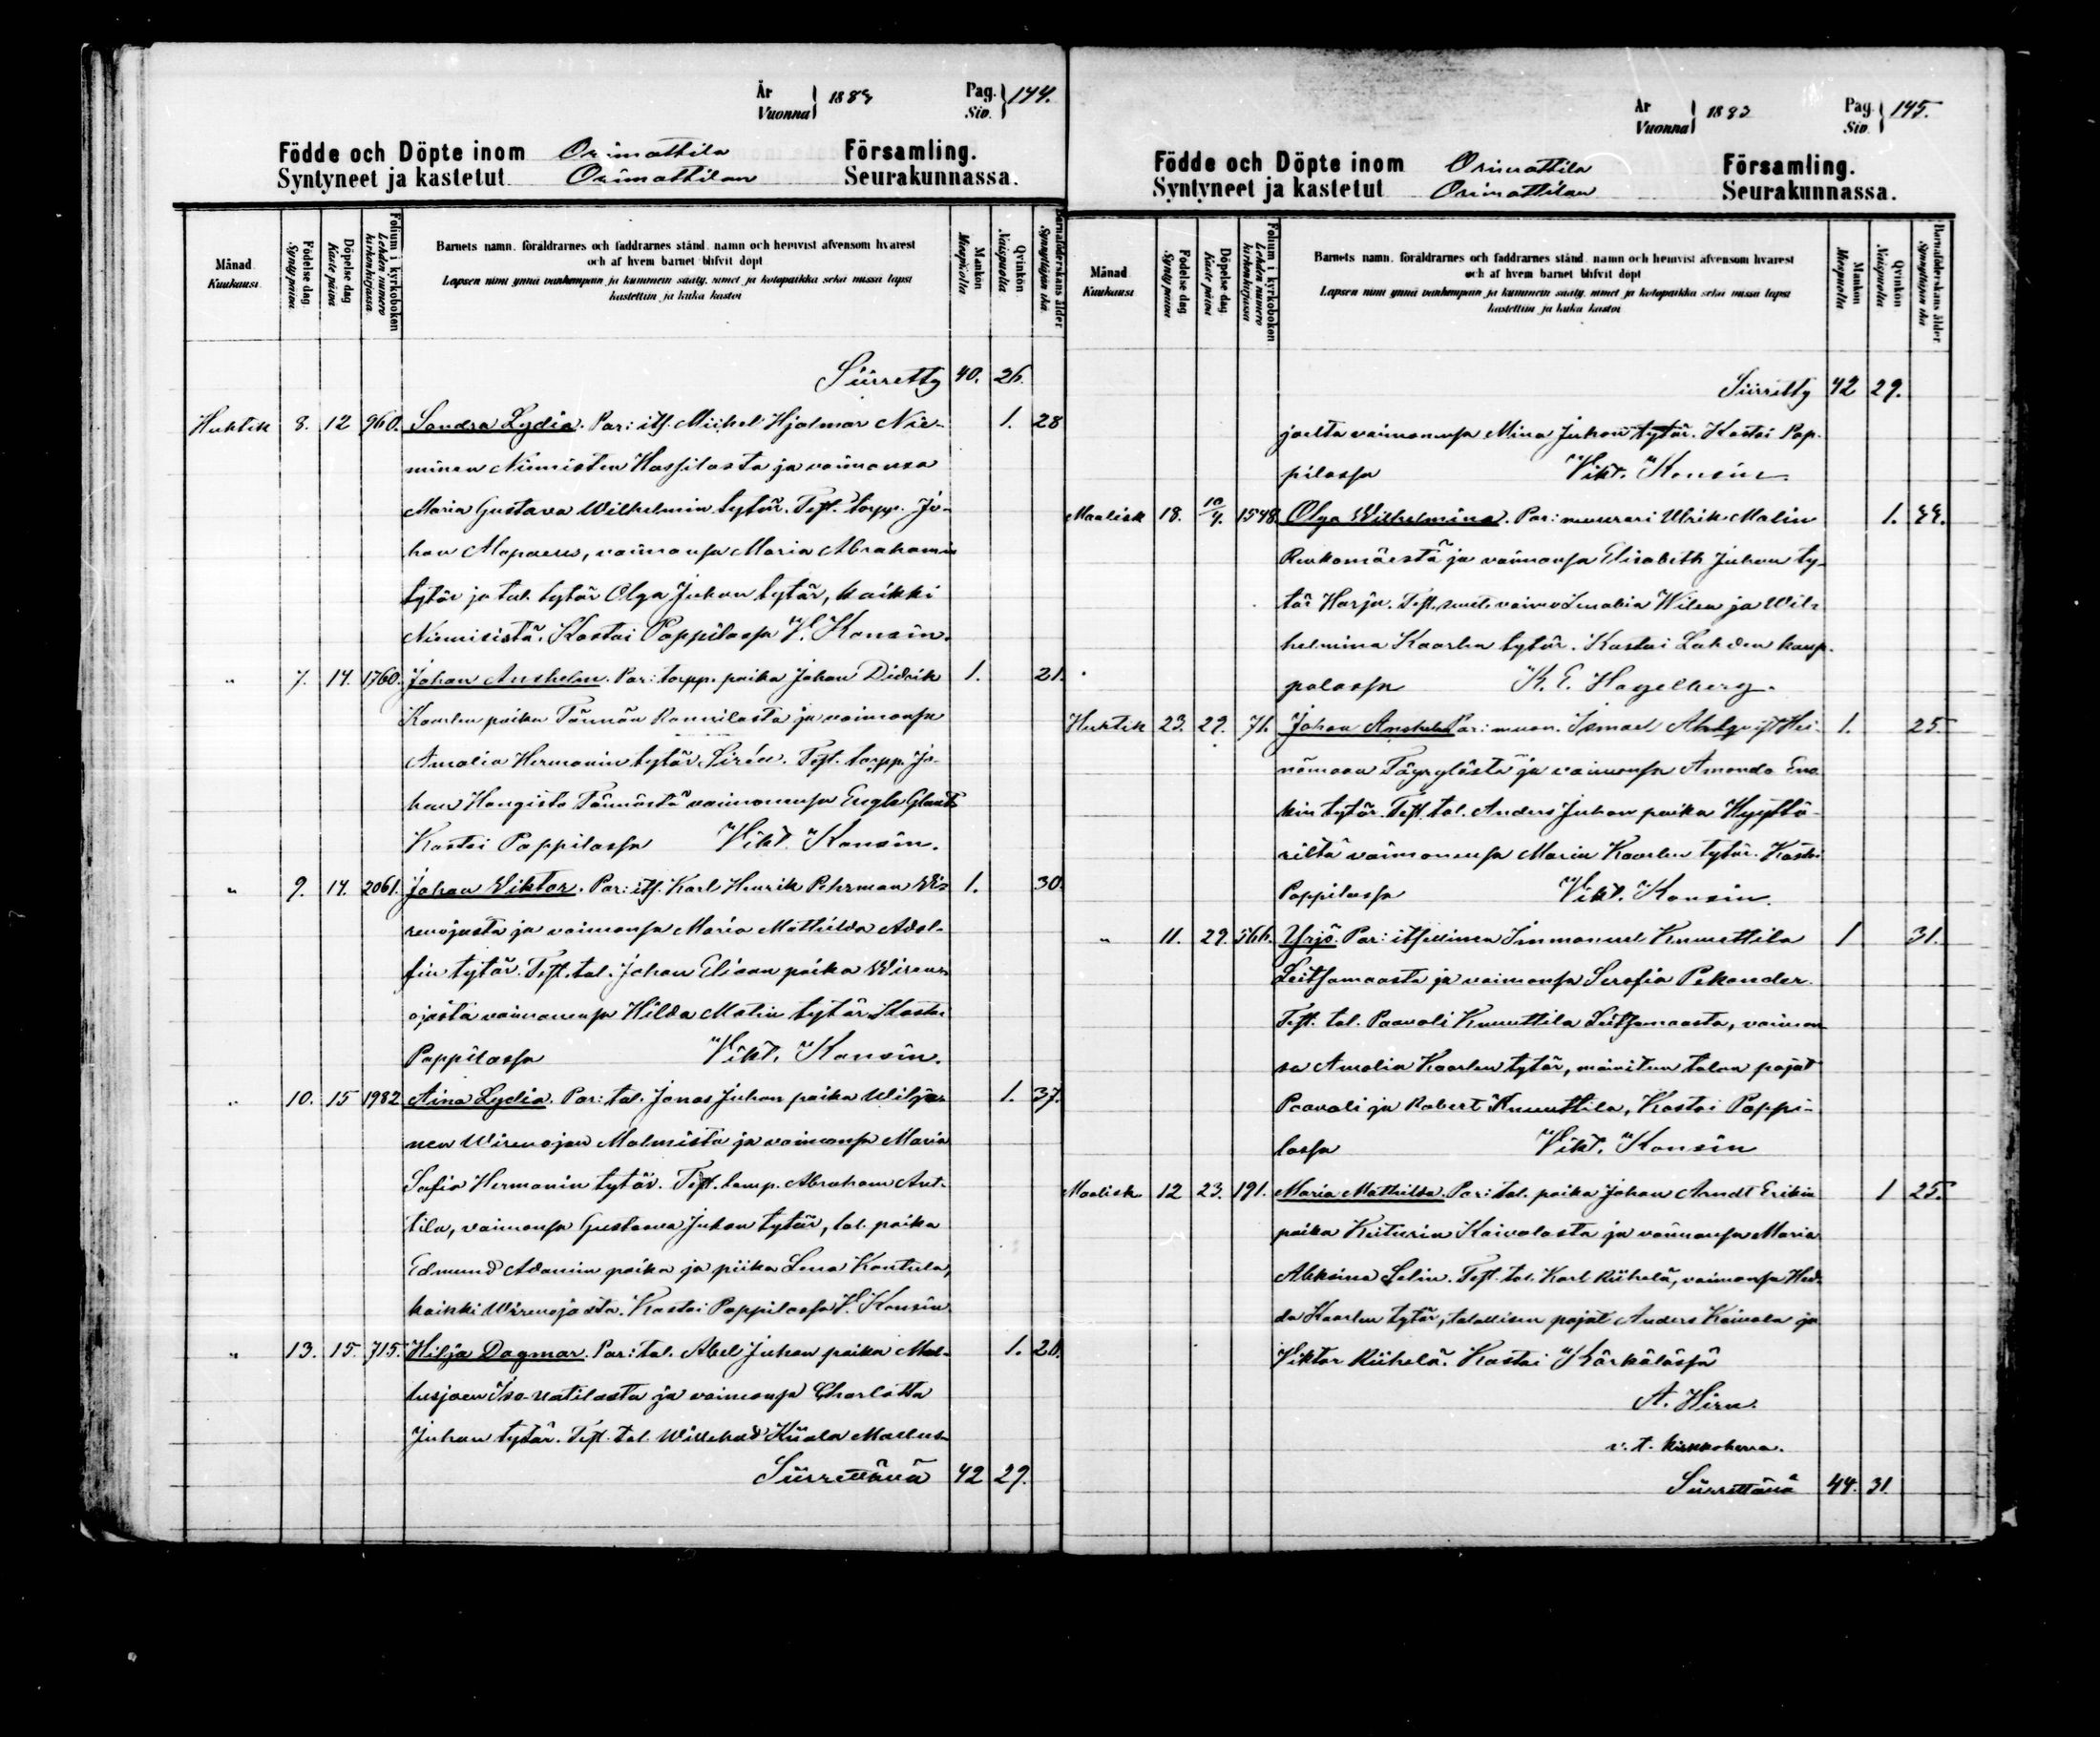 År
Vuonna } 1883
Pag.
Siv. } 144.
Födde och Döpte inom Orimattila Församling.
Syntyneet ja kastetut Orimattilan Seurakunnassa.
Månad.
Kuukausi.
Födelse dag.
Synty päivä.
Döpelse dag
Kaste päivä
Folium i kyrkoboken
Lehden numero kirkonkirjassa.
Barnets namn, föräldrarnes och faddrarnes stånd, namn och hemvist äfvensom hvarest
och af hvem barnet blifvit döpt
Lapsen nimi ynnä vanhempain ja kummein sääty, nimet ja kotopaikka sekä missä lapsi
kastettiin ja kuka kastoi
Mankön
Miespuolta
Qvinkön
Naispuolta
Barnaföderskans ålder
Synnyttäjän ikä.
Siirretty 40. 26.
Huhtik 8. 12 960. Sandra Lydia. Par: itf. Mickel Hjalmar Nie- 1. 28
minen Niemisten Hassilasta ja vaimonsa
Maria Gustava Wilhelmin tytär. Test. torpp. Jo-
han Alapaeus, vaimonsa Maria Abrahamin
tytär ja tal. tytär Olga Juhan tytär, kaikki
Niemisistä. Kastoi Pappilassa V. Konsin.
" 7. 14. 1760. Johan Anshelm. Par: torpp. poika Johan Didrik 1. 21.
Kaarlen poika Tännän Rannilasta ja vaimonsa
Amalia Hermanin tytär Sirén. Test. torpp. Jo-
han Hongisto Tännästä vaimonensa Engla Glant
Kastoi Pappilassa Vikt. Konsin.
" 9. 14. 2061. Johan Viktor. Par: itf. Karl Henrik Pehrman Wi- 1. 30.
renojasta ja vaimonsa Maria Mathilda Adol-
fin tytär. Test. tal. Johan Eliaan poika Wiren-
ojasta vaimonensa Hilda Matin tytär Kastoi
Pappilassa Vikt. Konsin.
" 10. 15 1982 Aina Lydia. Par: tal. Jonas Juhan poika Wiljan- 1. 37.
nen Wirenojan Malmista ja vaimonsa Maria
Sofia Hermanin tytär. Test. lamp. Abraham Ant-
tila, vaimonsa Gustaava Juhan tytär, tal. poika
Edmund Adamin poika ja piika Lena Kantula,
kaikki Wirenojasta. Kastoi Pappilassa V. Konsin
" 13. 15. 715. Hilja Dagmar. Par: tal. Abel Juhan poika Mal- 1. 20.
lusjoen Iso-Uotilasta ja vaimonsa Charlotta
Juhan tytär. Test. tal. Willehad Kiiala Mallus-
Siirrettävä 42 29.
År
Vuonna } 1883
Pag
Siv. } 145.
Födde och Döpte inom Orimattila Församling.
Syntyneet ja kastetut Orimattilan Seurakunnassa.
Månad
Kuukausi
Födelse dag
Synty päivä
Döpelse dag.
Kaste päivä
Folium i kyrkoboken
Lehden numero kirkonkirjassa
Barnets namn, föräldrarnes och faddrarnes stånd, namn och hemvist äfvensom hvarest
och af hvem barnet blifvit döpt
Lapsen nimi ynnä vanhempain ja kummein sääty, nimet ja kotopaikka sekä missä lapsi
kastettiin ja kuka kastoi
Mankön
Miespuolta
Qvinkön
Naispuolta
Barnaföderskans ålder
Synnyttäjän ikä
Siirretty 42 29.
joelta vaimonensa Mina Juhan tytär. Kastoi Pap-
pilassa Vikt. Konsin
Maalisk 18. 10/4. 1548 Olga Wilhelmina. Par: muurari Ulrik Malin 1. 44.
Renkomäestä ja vaimonsa Elisabeth Juhan ty-
tär Harju. Test. muut. vaimo Amalia Wilen ja Wil-
helmina Kaarlen tytär. Kastoi Lahden kaup-
palassa K. E. Hagelberg.
Huhtik 23. 29. 71. Johan Anshelm Par: muon. Ismael Ahlqvist Hei- 1. 25.
nämaan Täyrylästä ja vaimonsa Amanda Eno-
kin tytär. Test. tal. Anders Juhan poika Hyyttä-
riltä vaimonensa Maria Kaarlen tytär. Kastoi
Pappilassa Vikt. Konsin.
" 11. 29. 566. Yrjö. Par: itsellinen Immanuel Knuuttila 1 31.
Leitsamaasta ja vaimonsa Serafia Pekander.
Test. tal. Paavali Knuuttila Leitsamaasta, vaimon-
sa Amalia Kaarlen tytär, mainitun talon pojat
Paavali ja Robert Knuuttila, Kastoi Pappi-
lassa Vikt. Konsin
Maalisk 12 23. 191. Maria Mathilda. Par: tal. poika Johan Arndt Erikin 1 25.
poika Keiturin Kaivolasta ja vaimonsa Maria
Aleksina Selin. Test. tal. Karl Riihelä, vaimonsa Hed-
da Kaarlen tytär, talollisen pojat Anders Kaivola ja
Viktor Riihelä. Kastoi Kärkölässä
A. Hirn.
v. t. kirkkoherra.
Siirrettävä 44. 31.